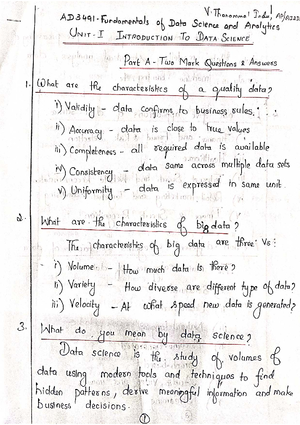 V. Thanammal Indu, AP/AI&DS
AD3491-Fundamentals of Data Science and Analytics
UNIT-I INTRODUCTION TO DATA SCIENCE
Part A - Two Mark Questions & Answers
1. What are the characteristics of a quality data?
i) Validity - data confirms to business rules.
ii) Accuracy - data is close to true values
iii) Completeness - all required data is available
iv) Consistency - data same across multiple data sets
v) Uniformity - data is expressed in same unit.
2. What are the characteristics of big data?
The characteristics of big data are three Vs:
i) Volume - How much data is there?
ii) Variety - How diverse are different type of data?
iii) Velocity - At what speed new data is generated?
3. What do you mean by data science?
Data science is the study of volumes of
data using modern tools and techniques to find
hidden patterns, derive meaningful information and make
business decisions.
1